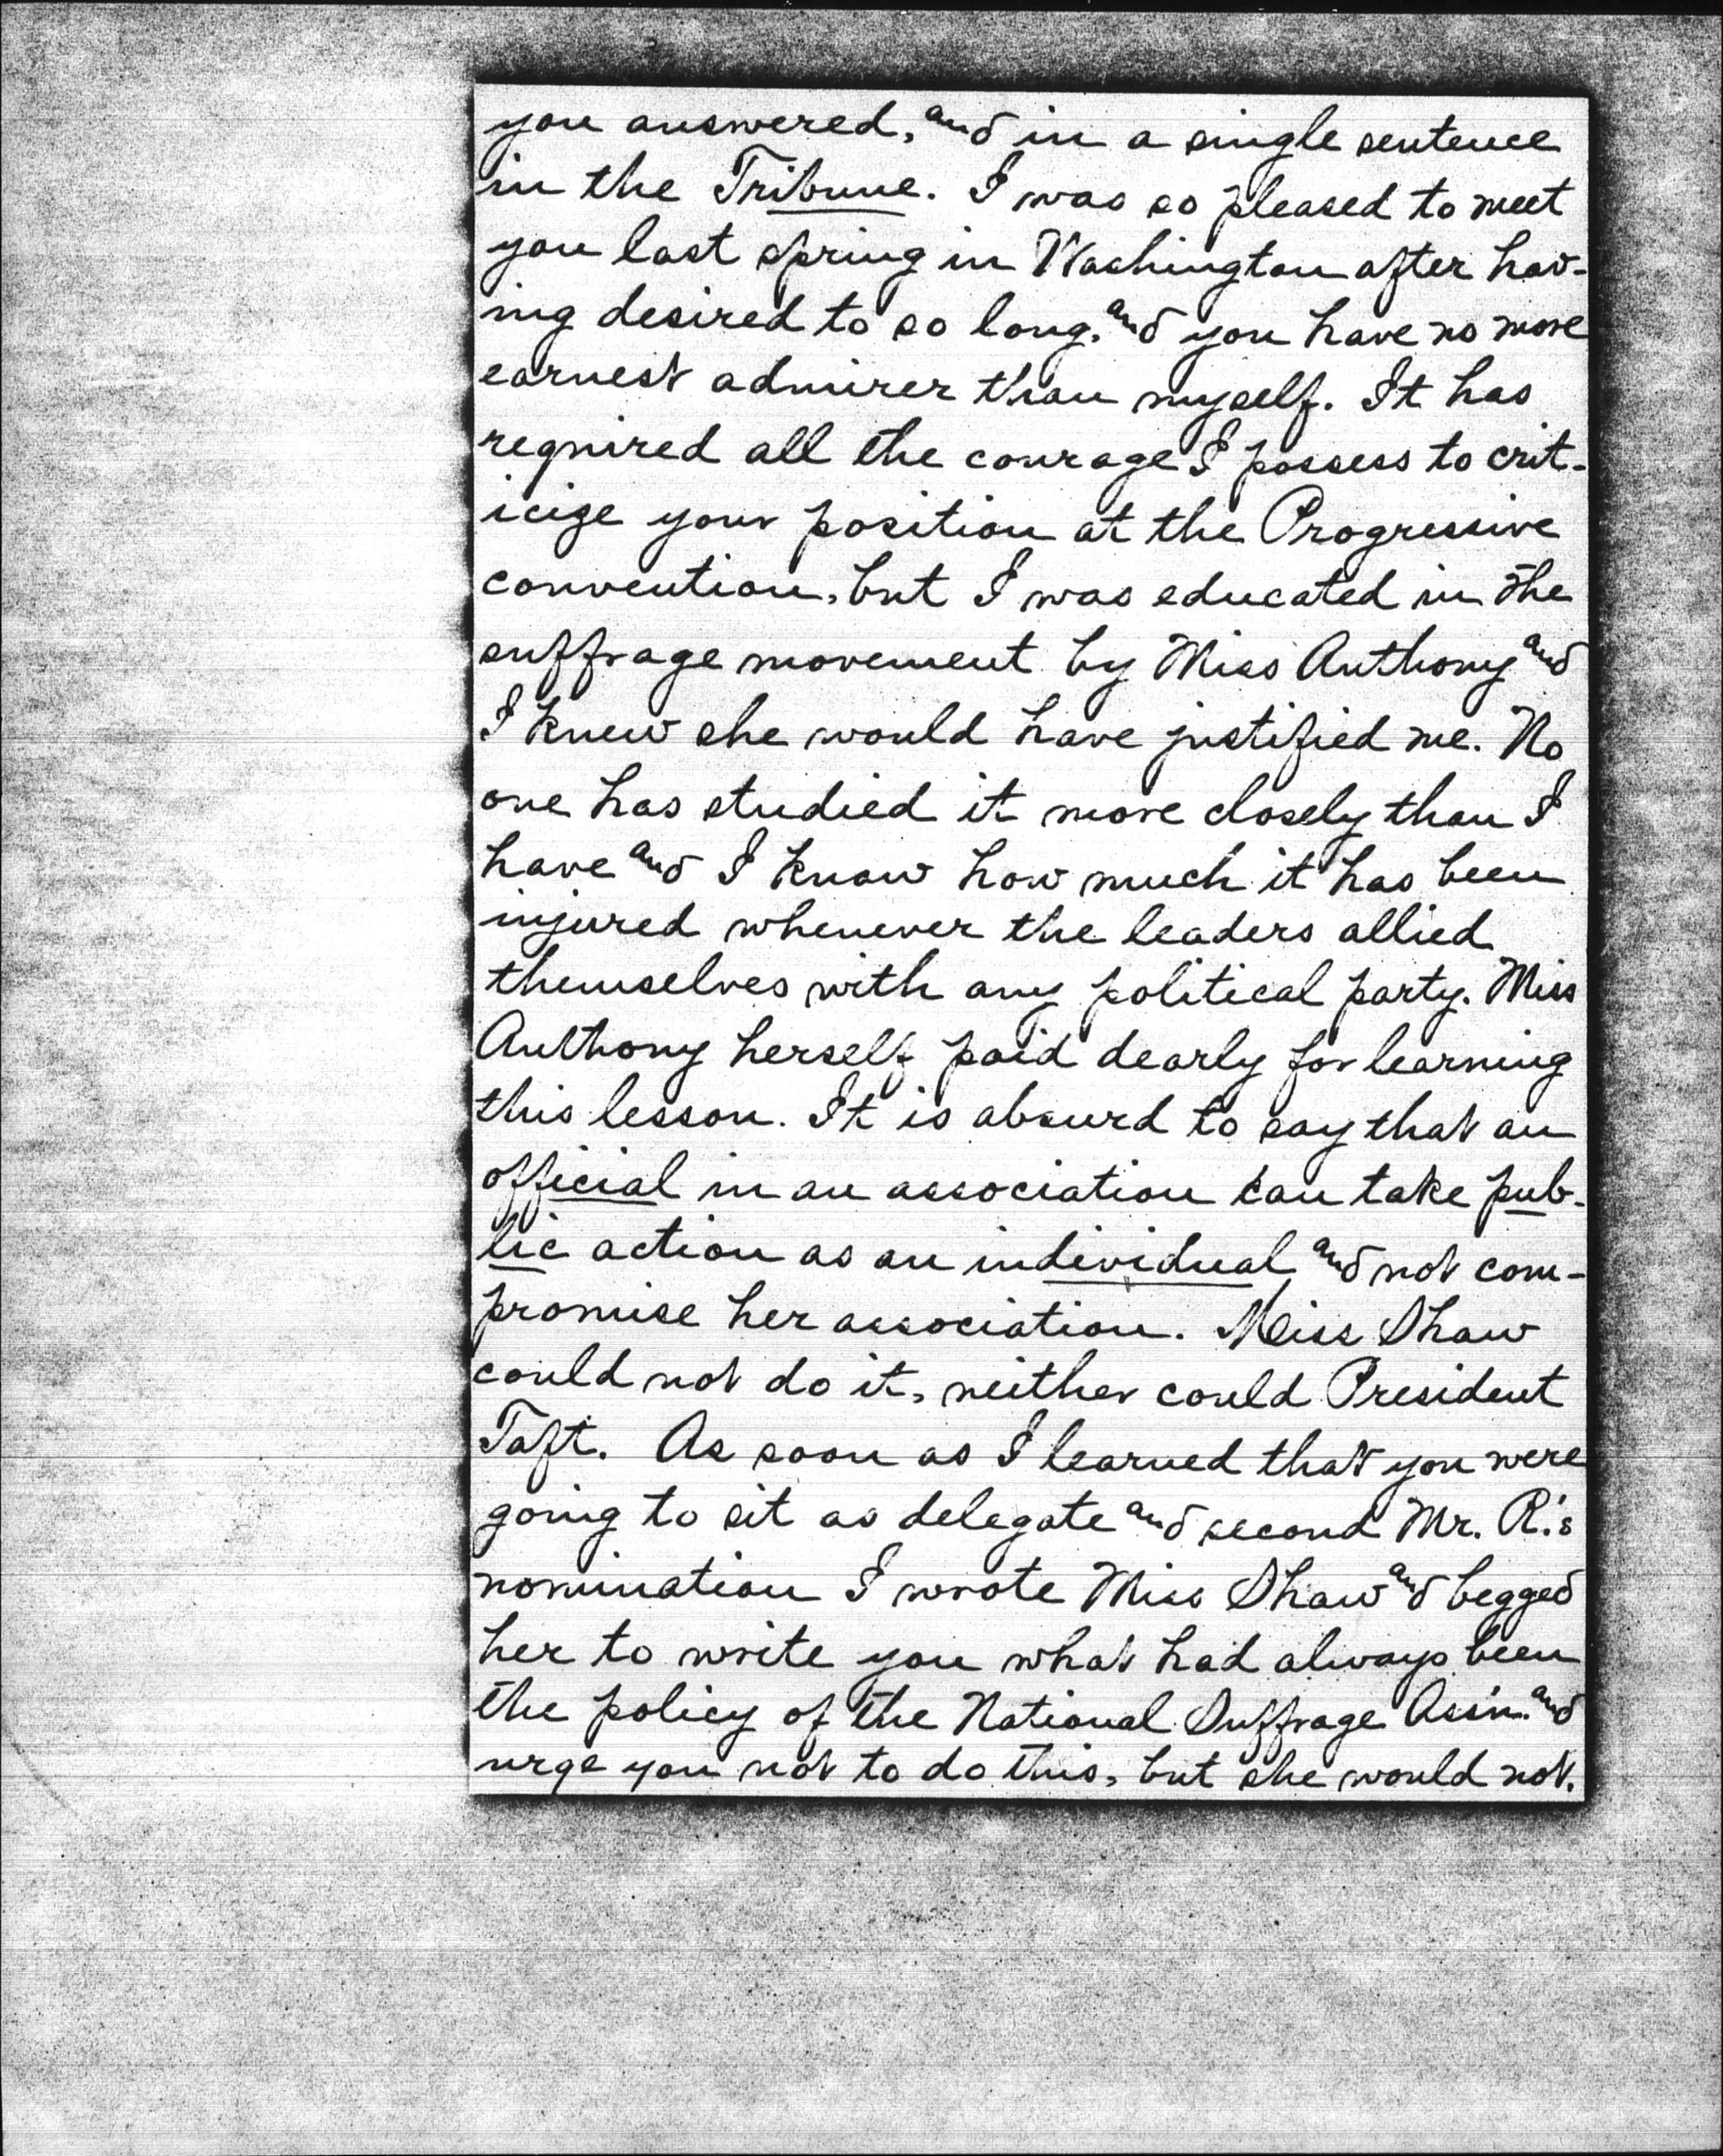 you answered, and in a single sentence
in the Tribune. I was so pleased to meet
you last spring in Washington after hav-
ing desired to so long, and you have no more
earnest admirer than myself. It has
required all the courage I possess to crit-
icize your position at the Progressive
convention, but I was educated in the
suffrage movement by Miss Anthony and
I knew she would have justified me. No
one has studied it more closely than I
have and I know how much it has been
injured whenever the leaders allied
themselves with any political party. Miss
Anthony herself paid dearly for learning
this lesson. It is absurd to say that an
official in an association can take pub-
lic action as an individual and not com-
promise her association. Miss Shaw
could not do it, neither could President
Taft. As soon as I learned that you were
going to sit as delegate and second Mr. R.'s
nomination I wrote Miss Shaw and begged
her to write you what had always been
the policy of the National Suffrage Ass'n. and
urge you not to do this, but she would not.